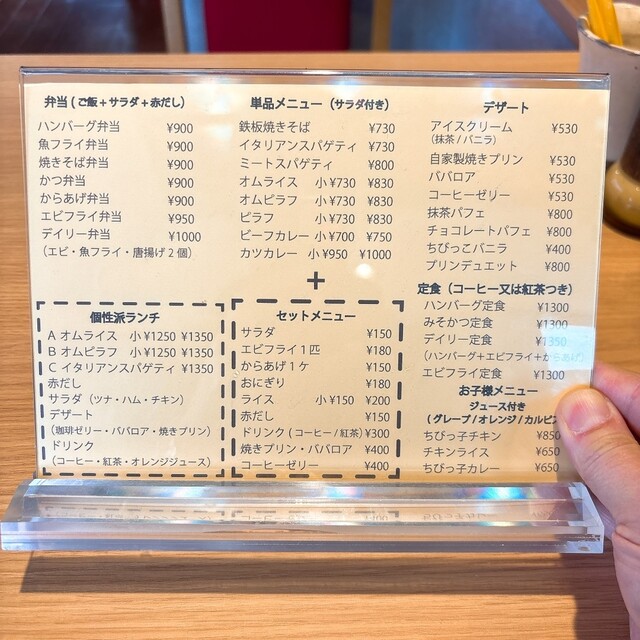 弁当 ( ご飯 + サラダ + 赤だし )
ハンバーグ弁当 ¥900
魚フライ弁当 ¥900
焼きそば弁当 ¥900
かつ弁当 ¥900
からあげ弁当 ¥900
エビフライ弁当 ¥950
デイリー弁当 ¥1000
（エビ・魚フライ・唐揚げ 2 個）
個性派ランチ
A オムライス 小 ¥1250 ¥1350
B オムピラフ 小 ¥1250 ¥1350
C イタリアンスパゲティ ¥1350
赤だし
サラダ （ツナ・ハム・チキン）
デザート
（珈琲ゼリー・ババロア・焼きプリン）
ドリンク
（コーヒー・紅茶・オレンジジュース）
単品メニュー（サラダ付き）
鉄板焼きそば ¥730
イタリアンスパゲティ ¥730
ミートスパゲティ ¥800
オムライス 小 ¥730 ¥830
オムピラフ 小 ¥730 ¥830
ピラフ 小 ¥730 ¥830
ビーフカレー 小 ¥700 ¥750
カツカレー 小 ¥950 ¥1000
+
セットメニュー
サラダ ¥150
エビフライ 1 匹 ¥180
からあげ 1 ケ ¥150
おにぎり ¥180
ライス 小 ¥150 ¥200
赤だし ¥150
ドリンク ( コーヒー / 紅茶 ) ¥300
焼きプリン・ババロア ¥400
コーヒーゼリー ¥400
デザート
アイスクリーム ¥530
（抹茶 / バニラ）
自家製焼きプリン ¥530
ババロア ¥530
コーヒーゼリー ¥530
抹茶パフェ ¥800
チョコレートパフェ ¥800
ちびっこバニラ ¥400
プリンデュエット ¥800
定食（コーヒー又は紅茶つき）
ハンバーグ定食 ¥1300
みそかつ定食 ¥1300
デイリー定食 ¥1350
（ハンバーグ＋エビフライ＋からあげ）
エビフライ定食 ¥1300
お子様メニュー
ジュース付き
( グレープ / オレンジ / カルピス
ちびっ子チキン ¥850
チキンライス ¥650
ちびっ子カレー ¥650